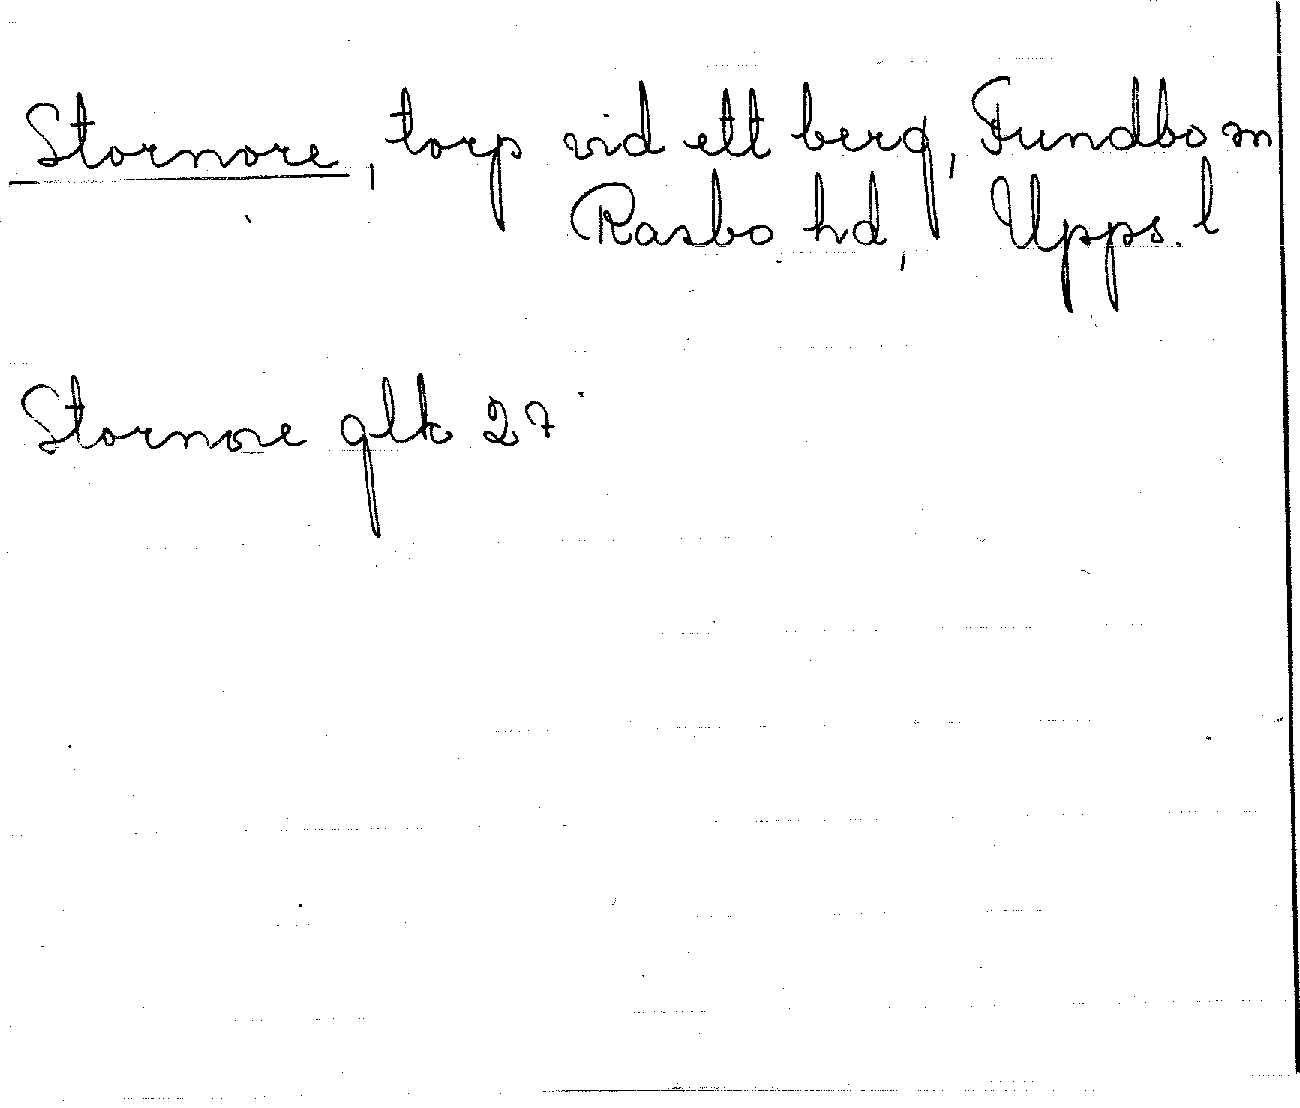 Stornore, torp vid ett berg, Fundbo sn
Rasbo hd, Upps. l
Stornore glk 27